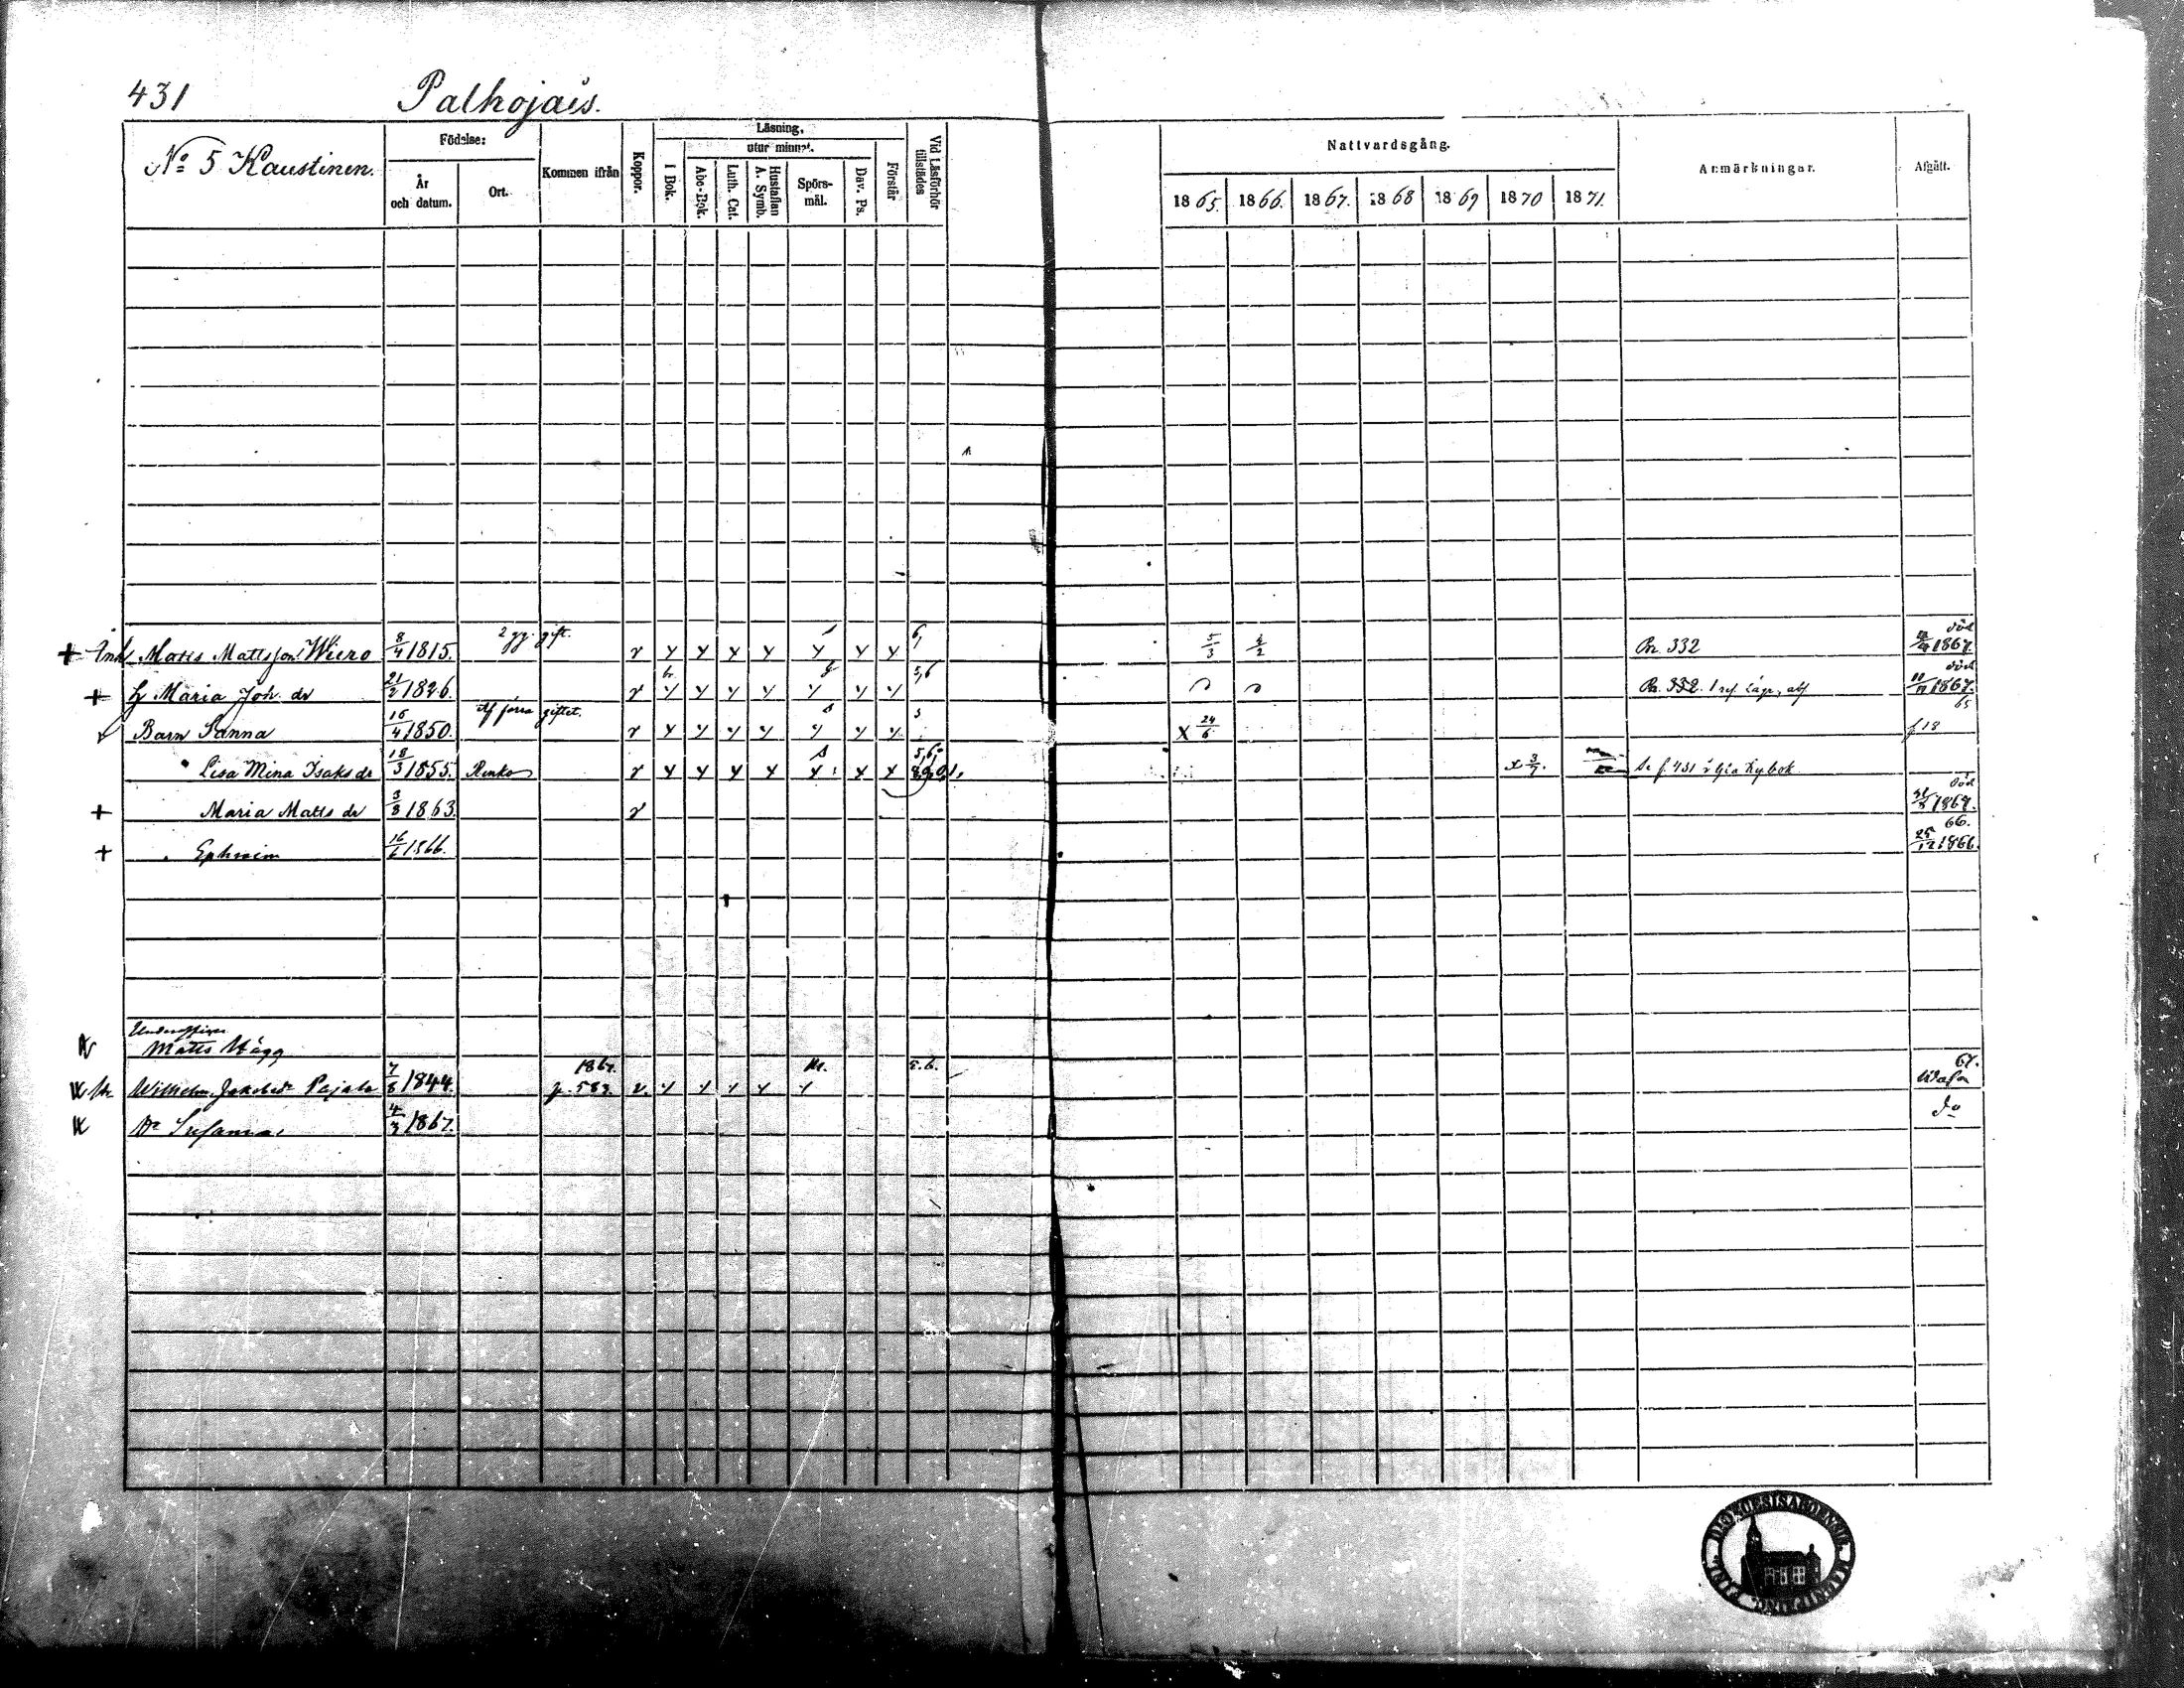 431 Palhojais.
No 5 Kaustinen.
Födelse:
År och datum.
Ort.
Kommen ifrån
Koppor.
Läsning,
utur minnet.
I Bok.
Abc-Bok.
Luth. Cat.
Hustaflan A. Symb.
Spörsmål.
Dav. Ps.
Förstår
Vid Läsförhör tillstädes
Nattvardsgång.
1865. 1866. 1867. 1868 1869 1870 1871.
Anmärkningar.
Afgått.
+ Inh. Matts Mattsson Wiero 8/4 1815. 2 gg. gift. v y y y y y y y 6, 5/3 4/2 Br. 332 död 1867.
+ H Maria Joh. dr 21/2 1826. v y y y y y y y 5,6 Br. 332. död 11/11 1867.
Barn Sanna 16/4 1850. Af förra giftet. v y y y y y y y 5 x 24/6 65 f 18
Lisa Mina Isaks dr 18/3 1855. v y y y y y y y x 3/7. Se f. 431 i Nya Kybok
+ Maria Matts dr 3/3 1863. v död 1867.
+ Ephraim 16/6 1866. 66. 25/12 1866.
Underofficer
Matts Hägg
Wilhelm. Jakobsdr Pajala 7/8 1844. 1867. p. 583. v. y y y y y 5.6. 67. Wasa
Dr Susanna 4/3 1867. do